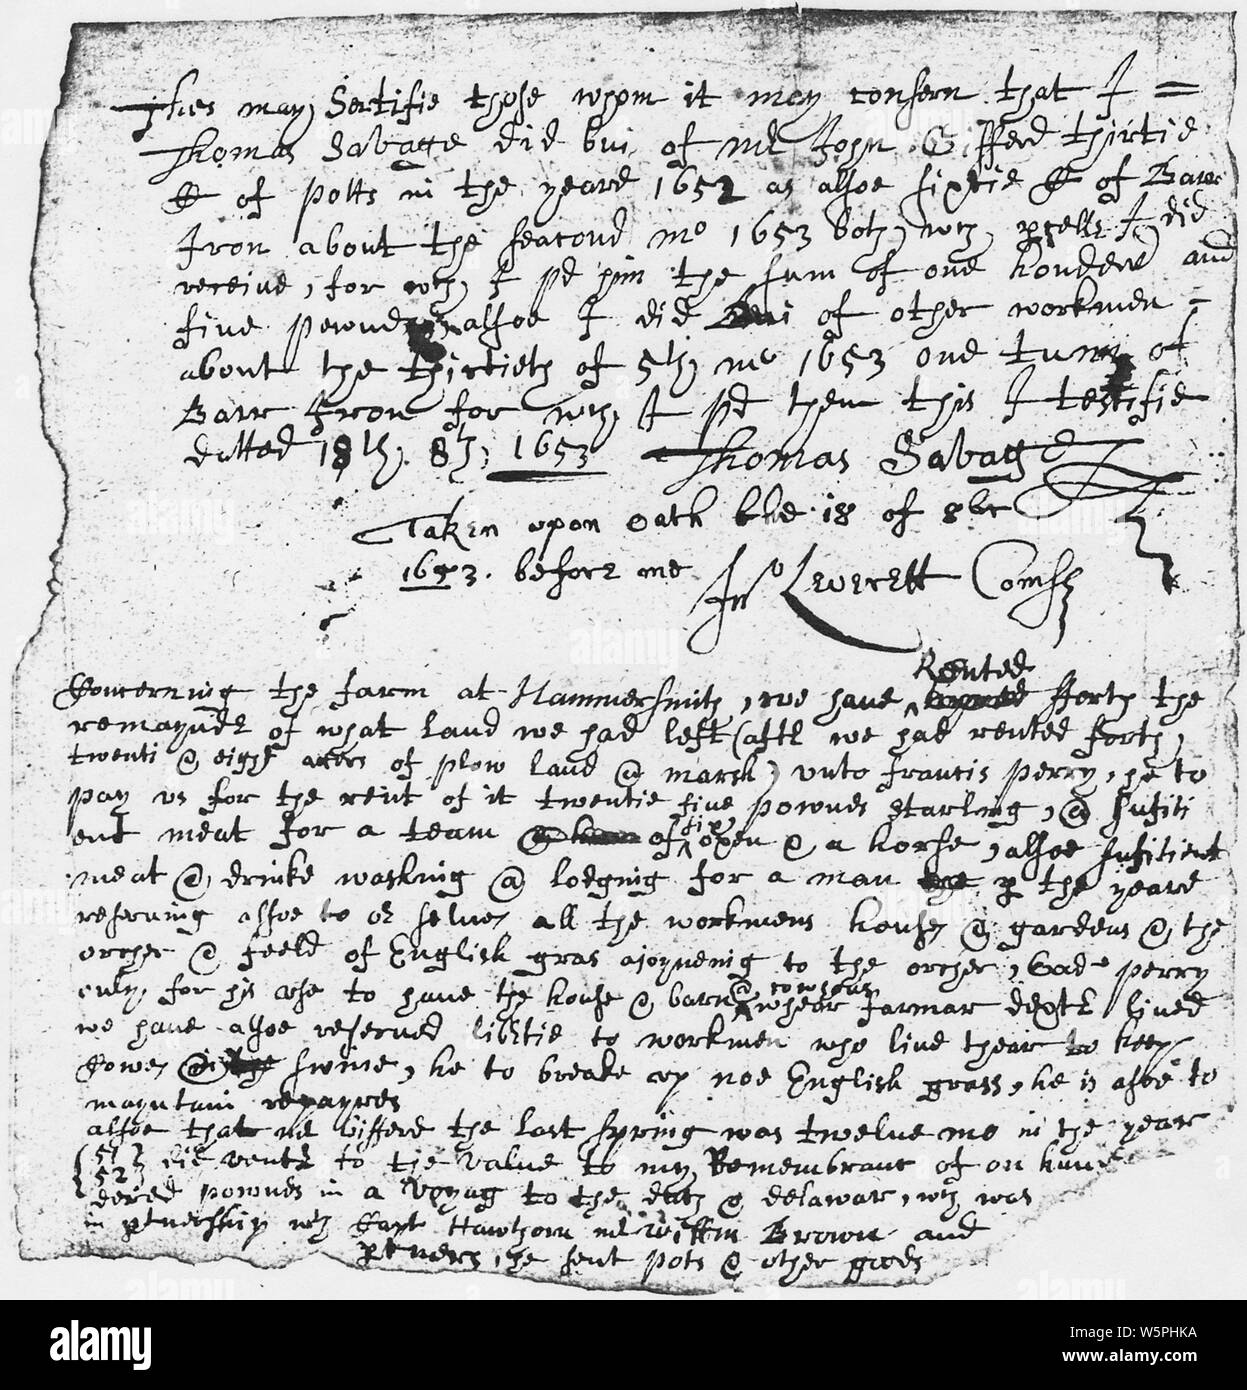 Thes may Sertifie those whom it may consern that I =
Thomas Savage did bui of mr John Gifferd thirtie
of potts in the yeare 1652 as alsoe sixtie of Barr
Iron about the seacond mo 1653 both wch pcells I did
receive, for wch I pd him the sum of one hondered and
five pownds alsoe I did Bui of other workmen =
about the thirtieth of 5th mo 1653 one tunn of
Barr Iron for wch I pd them this I testifie
datted 18th 8th 1653 Thomas Savage
Taken upon oath the 18 of 8br
1653. before me Jno Leverett Comsr
Rented
Conserning the farm at Hammersmith, we have forth the
remaynder of what land we had left (aftr we had rented forth,
twenti & eight acers of plow land @ marsh) unto francis perry, he to
pay us for the rent of it twentie five pownds starling, @ sufiti
ent meat for a team of six oxen @ a horse, alsoe sufitient
meat @ drinke washing @ lodgnig for a man p the yeare
reserving alsoe to or selves all the workmens houses @ gardens @ the
orcher @ feeld of English gras ajoynenig to the orcher, Goad perry
only for his use to have the house @ barn @ cowhous whear farmar dextr lived
we have alsoe reserved librtie to workmen who live thear to keep
Cowes @ swine, he to breake up noe English grass, he is alsoe to
mayntain repayres
alsoe that mr Gifferd the last spring was twelve mo in the year
51 did ventr to the value to my Remembranc of on hun
52
dered pownds in a voyag to the dutch @ delawar, wch was
in ptnership wth Capt Hawthorn mr Willm Brown and
ptners, he sent pots @ other goods
alamy
Image ID: W5PHKA
www.alamy.com